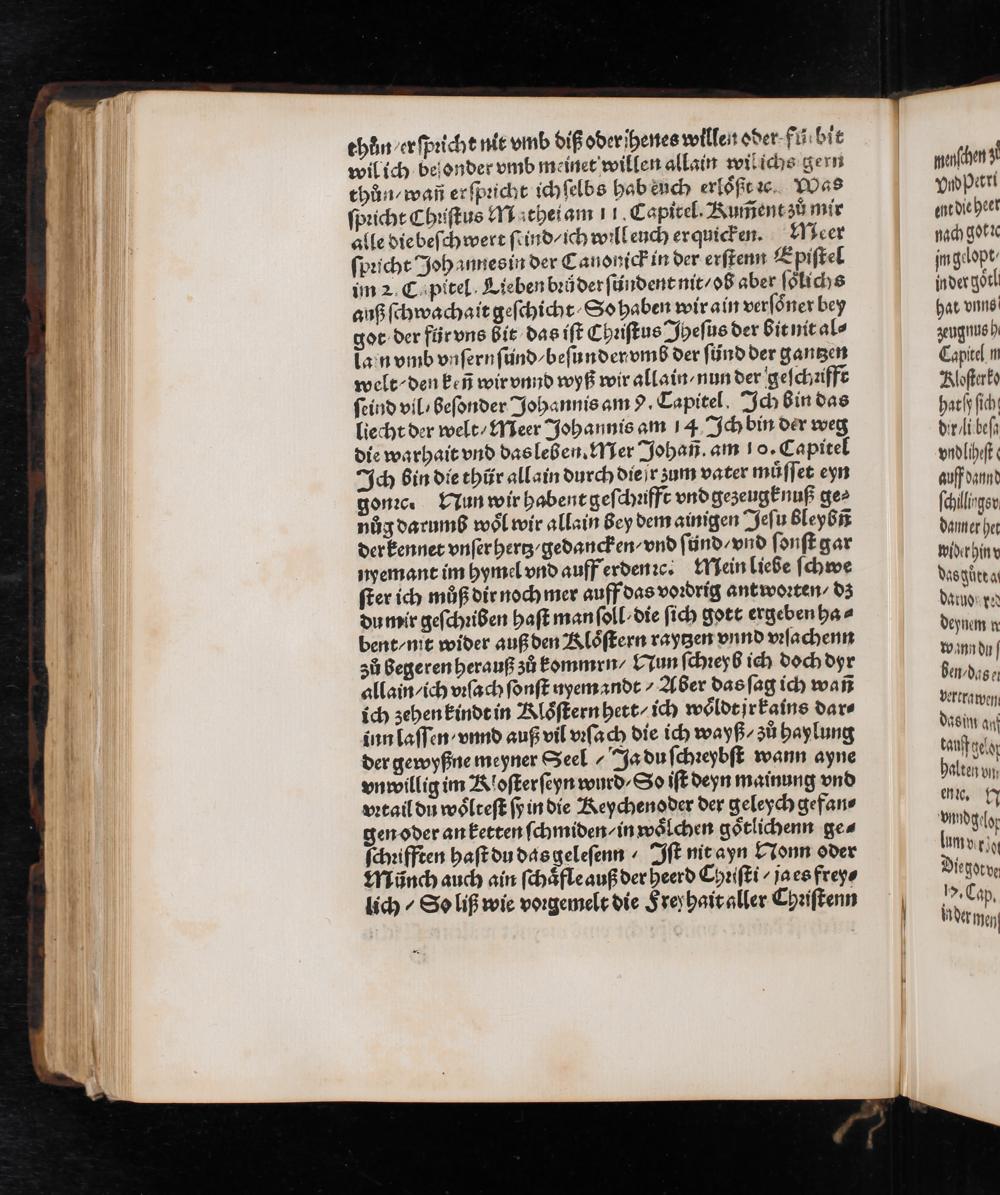 thůn / er spricht nit vmb diß oder jhenes willen oder fürbit
wil ich besonder vmb meinet willen allain wil ichs gern
thůn / wañ er spricht ich selbs hab euch erlőßt ꝛc. Was
spricht Christus Mathei am 11. Capitel. Kum̃ent zů mir
alle die beschwert seind / ich will euch erquicken. Meer
spricht Johannes in der Canonick in der erstenn Epistel
im 2. Capitel. Lieben brüder sündent nit / ob aber sőlichs
auß schwachait geschicht. So haben wir ain versőner bey
got der für vns bit das ist Christus Jhesus der bit nit al⸗
lain vmb vnsern sünd / besunder vmb der sünd der gantzen
welt / den keñ wir vnnd wyß wir allain / nun der geschrifft
seind vil / besonder Johannis am 9. Capitel. Jch bin das
liecht der welt / Meer Johannis am 14 Jch bin der weg
die warhait vnd das leben. Mer Johañ. am 10. Capitel
Jch bin die thür allain durch die jr zum vater můsset eyn
gon ꝛc. Nun wir habent geschrifft vnd gezeugknuß ge⸗
nůg darumb wől wir allain bey dem ainigen Jesu bleybñ
der kennet vnser hertz / gedancken / vnd sünd / vnd sonst gar
nyemant im hymel vnd auff erden ꝛc. Mein liebe schwe
ster ich můß dir noch mer auff das vordrig antworten / dz
du mir geschriben hast man soll / die sich gott ergeben ha⸗
bent / nit wider auß den Klőstern raytzen vnnd vrsachenn
zů begeren herauß zů kommrn / Nun schreyb ich doch dyr
allain / ich vrsach sonst nyemandt / Aber das sag ich wañ
ich zehen kindt in Klőstern hett / ich wőldt jr kains dar⸗
inn lassen / vnnd auß vil vrsach die ich wayß / zů haylung
der gewyßne meyner Seel / Ja du schreybst wann ayne
vnwillig im Kloster seyn wurd / So ist deyn mainung vnd
vrtail du wőltest sy in die Keychen oder der geleych gefan⸗
gen oder an ketten schmiden / in wőlchen gőtlichenn ge⸗
schrifften hast du das gelesenn / Jst nit ayn Nonn oder
Münch auch ain schåfle auß der heerd Christi / ja es frey⸗
lich / So liß wie vorgemelt die Freyhait aller Christenn
menschen zů
Vnd Petri
ent die heer
nach got ꝛc
jm gelopt /
in der gőtli
hat vnns
zeugnus
Capitel
Kloster
hat sy sich
vnd lihest
auff dann
danner het
wider hin
das gůt
deynem
wann du
ben / das
das im
halten
en ꝛc.
17. Cap.
in der